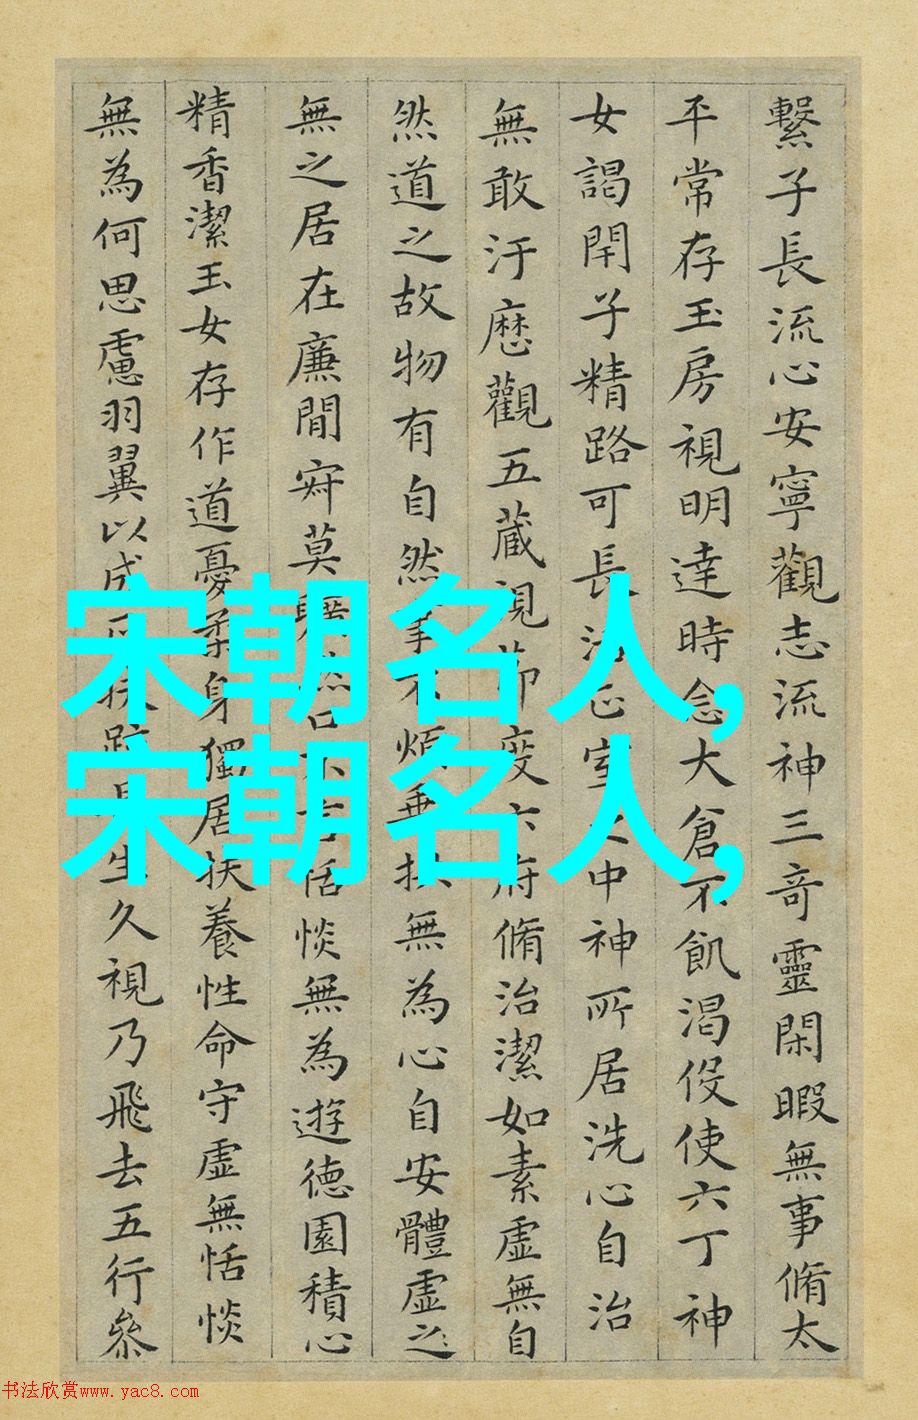 繫子長流心安寧觀志流神三竒靈閑暇無事脩太
平常存玉房視明達時念大倉不飢渴伇使六丁神
女謁閇子精路可長活正室之中神所居洗心自治
無敢汙歴觀五藏視節度六府脩治潔如素虛無自
然道之故物有自然事不煩垂拱無為心自安體虛之
無之居在廉間莫曠然口不言恬惔無為遊德園積心
精香潔玉女存作道憂柔身獨居扶養性命守虛無恬惔
無為何思慮羽翼以成正扶踈長生久視乃飛去五行叅
宋朝名人,
宋朝名人,
书法欣赏www.yac8.com